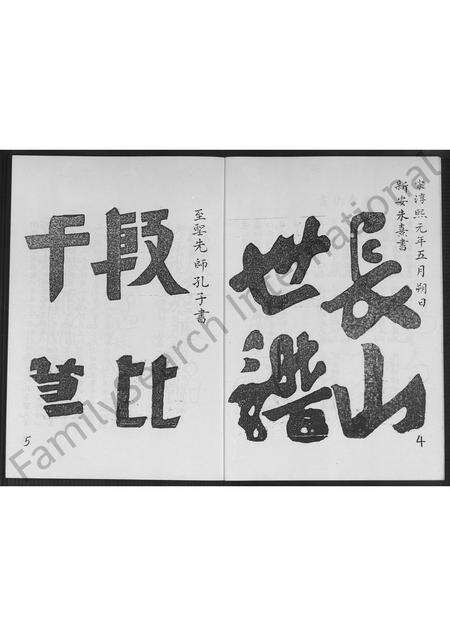 宋淳熙元年五月朔日
新安朱熹書
長山
世譜
4
至聖先師孔子書
殷比
干莫
5
FamilySearch International